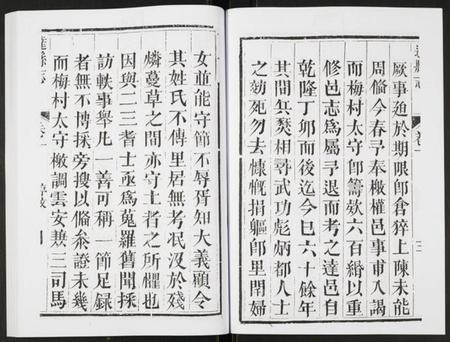 厥事廹於期限卽倉猝上陳未能
周僃今春予奉檄權邑事甫入謁
而梅村太守卽籌欵六百緡以重
修邑志爲屬予退而考之達邑自
乾隆丁卯而後迄今巳六十餘年
其間兵燹相尋武功彪炳都人士
之効死勿去慷慨捐軀卽里閈婦
女並能守節不辱胥知大義顧令
其姓氏不傳里居無考冺没於殘
燐蔓草之間亦守土者之所懼也
因與二三耆士亟爲蒐羅舊聞採
訪軼事舉凡一善可稱一節足録
者無不博採旁搜以僃叅證未幾
而梅村太守檄調雲安兼三司馬
達縣志
卷